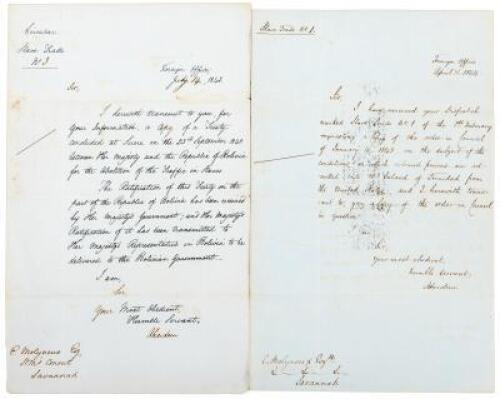 Circular
Slave Trade
No 3
Foreign Office
July 14, 1843
Sir,
I herewith transmit to you, for
your Information, a Copy of a Treaty
concluded at Sucre on the 25th September 1840
between Her Majesty and the Republic of Bolivia
for the Abolition of the Traffic in Slaves
The Ratification of this Treaty on the
part of the Republic of Bolivia has been received
by Her Majesty's Government; and Her Majesty's
Ratification of it has been transmitted to
Her Majesty's Representative in Bolivia to be
delivered to the Bolivian Government.
I am,
Sir
Your Most Obedient,
Humble Servant,
Aberdeen
E Molyneux Esq
Savannah
Slave Trade No 1.
Foreign Office
April
Sir,
I have received your Dispatch
marked Slave Trade No 1 of the
requesting a Copy of the order in Council
of January 1843 on the subject of the
conditions on which coloured persons are
Island of Trinidad from
the United States and I herewith transmit
to you a Copy of the order in Council
in question
I am
Sir,
your most obedient
humble Servant,
Aberdeen
E. Molyneux Esqre
Savannah